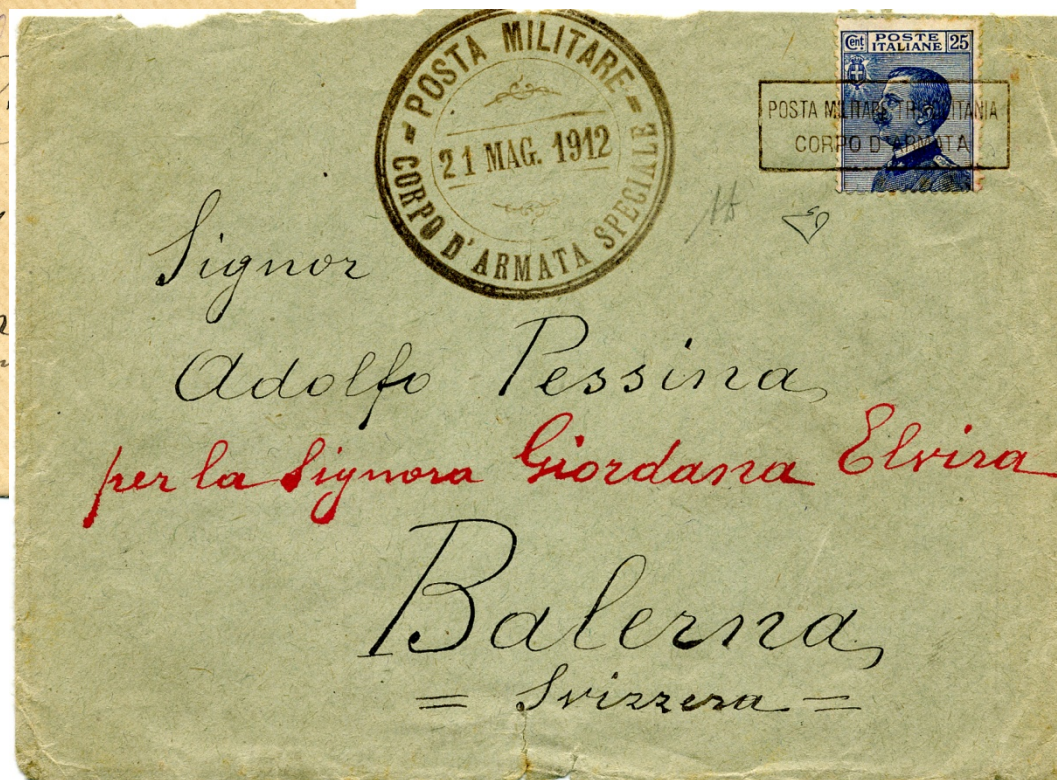 POSTA MILITARE
21 MAG. 1912
CORPO D'ARMATA SPECIALE
Cent POSTE ITALIANE 25
POSTA MILITARE TRIPOLITANIA
CORPO D'ARMATA
Signor
Adolfo Pessina
per la Signora Giordana Elvira
Balerna
= Svizzera =